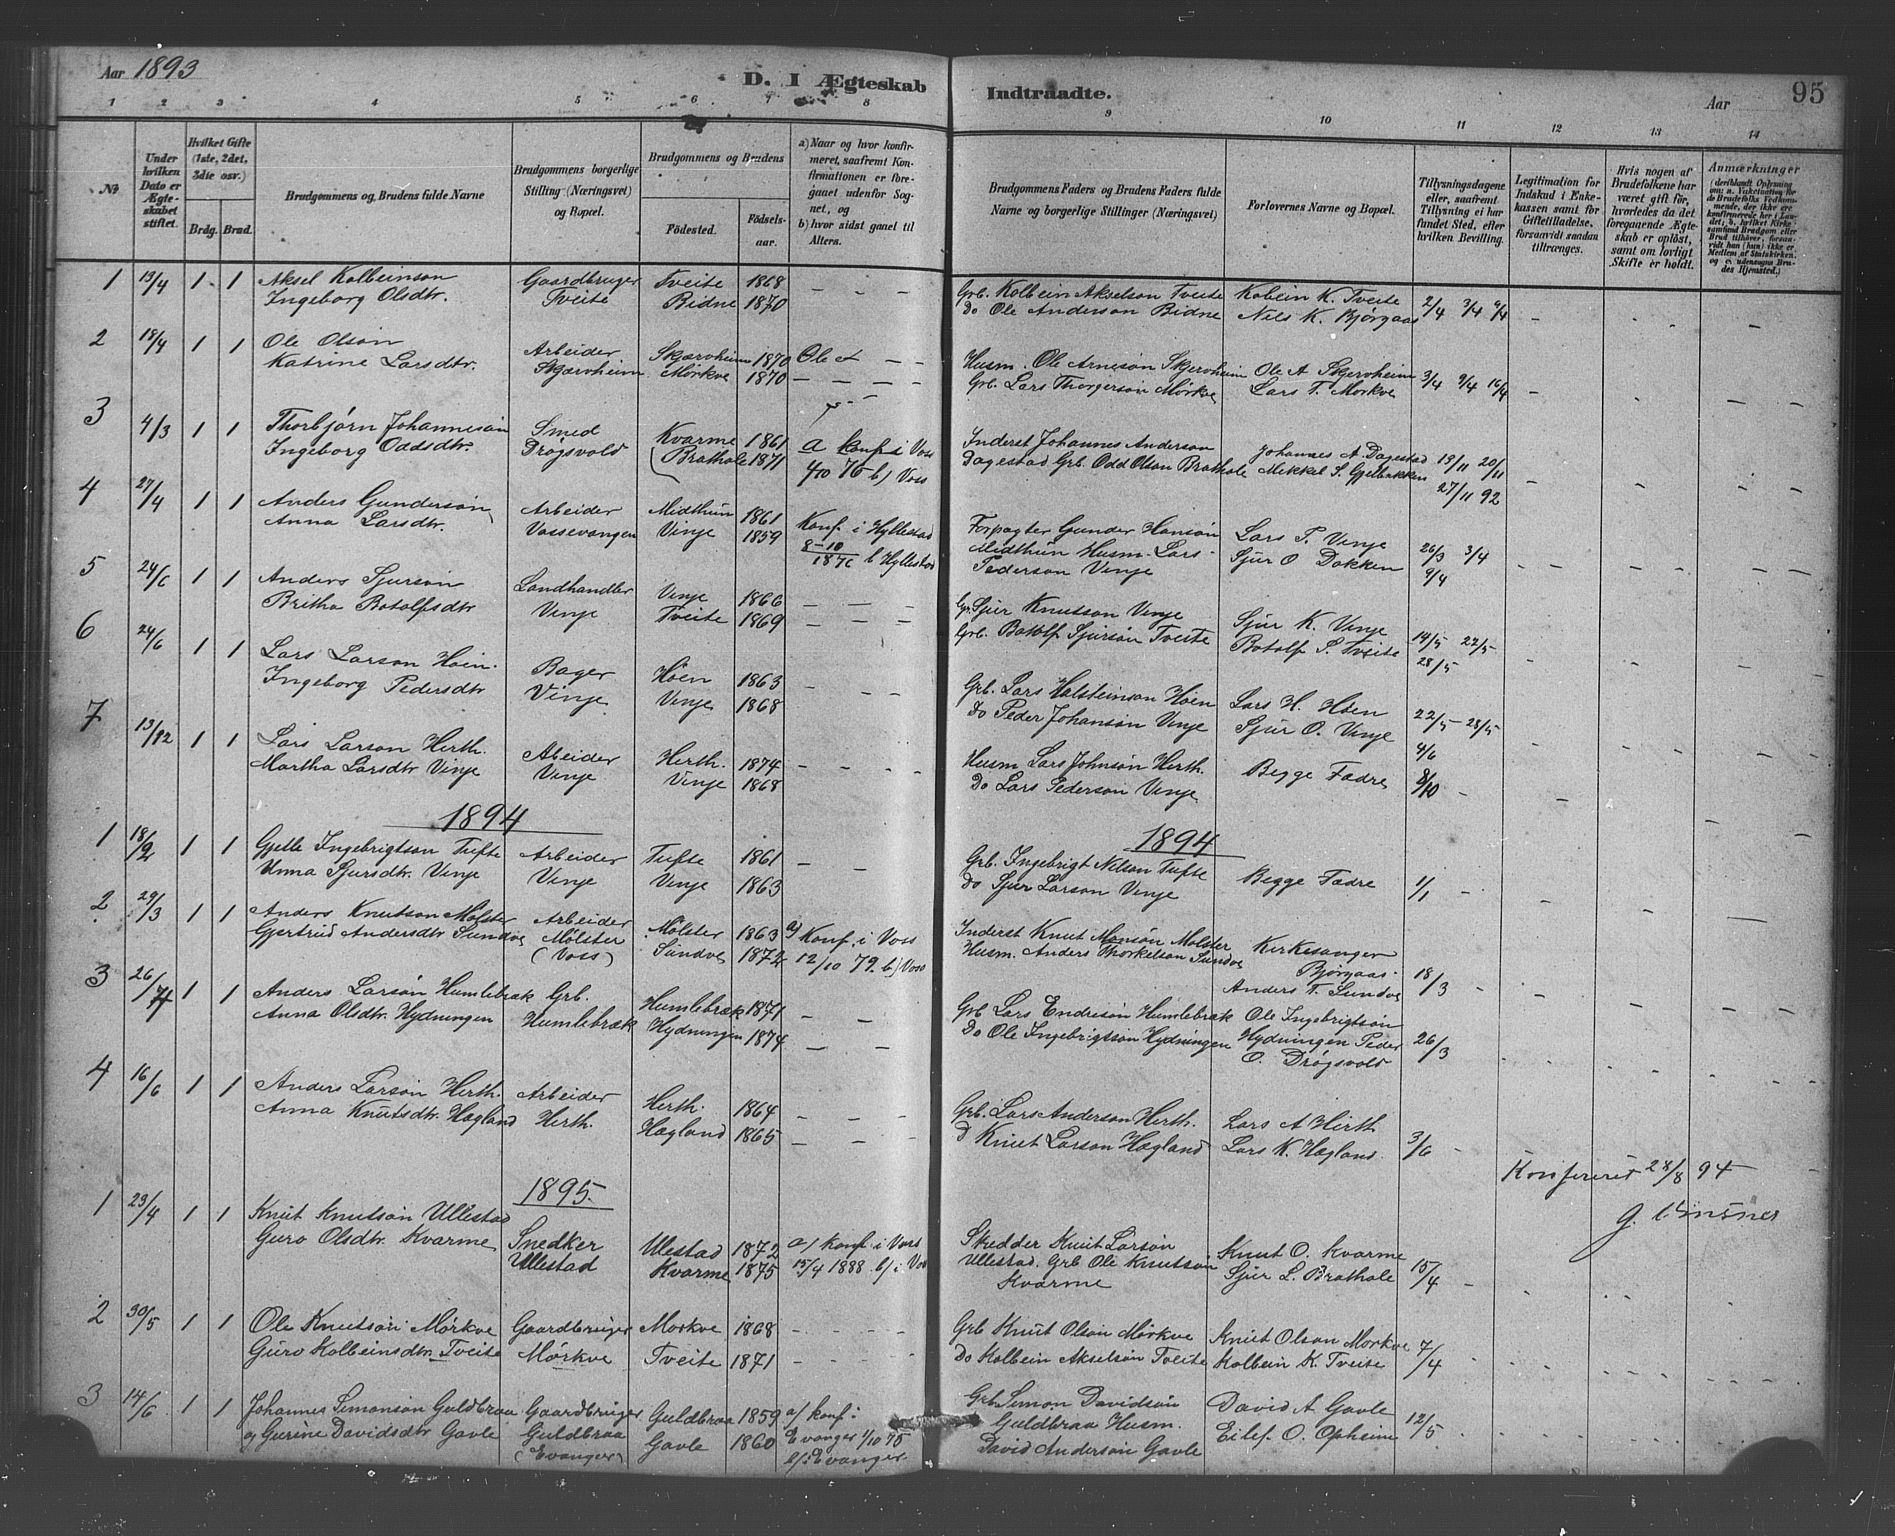 Aar 1893
D. I Ægteskab Indtraadte.
Aar
95
1 2 3 4 5 6 7 8 9 10 11 12 13 14
No
Under hvilken Dato er Ægteskabet stiftet.
Hvilket Gifte (1ste, 2det, 3die osv.)
Brdg. Brud.
Brudgommens og Brudens fulde Navne
Brudgommens borgerlige Stilling (Næringsvei) og Bopæl.
Brudgommens og Brudens
Fødested.
Fødselsaar.
a) Naar og hvor konfirmeret, saafremt Konfirmationen er foregaaet udenfor Sognet, og
b) hvor sidst gaaet til Alters.
Brudgommens Faders og Brudens Faders fulde Navne og borgerlige Stillinger (Næringsvei)
Forlovernes Navne og Bopæl.
Tillysningsdagene eller, saafremt Tillysning ei har fundet Sted, efter hvilken Bevilling.
Legitimation for Indskud i Enkekassen samt for Giftetilladelse, forsaavidt saadan tiltrænges.
Hvis nogen af Brudefolkene har været gift før, hvorledes da det foregaaende Ægteskab er opløst, samt om lovligt Skifte er holdt.
Anmærkninger
1 13/4 1 1 Aksel Kolbeinson Gaardbruger Tveite 1868 Grb. Kolbein Akselson Tveite Kobein K. Tveite 2/4 3/4 9/4
Ingeborg Olsdtr. Tveite Bidne 1870 Do Ole Anderson Bidne Nils K. Bjørgaas
2 18/4 1 1 Ole Olson Arbeider Skjærvheim 1870 Ole Husm. Ole Arneson Skjervheim Ole A Skjervheim 3/4 9/4 16/4
Katrine Larsdtr. Skjærvheim Mørkve 1870 Grb. Lars Thorgerson Mørkve Lars T. Mørkve
3 4/3 1 1 Thorbjørn Johanneson Smed Kvarme 1861 a konf i Voss Inderst Johannes Anderson Johannes A. Dagestad 13/11 20/11
Ingeborg Oddsdtr. Drøgsvold Brathole 1871 4/10 76 b) Voss Dagestad Grb. Odd Olson Brathole Mikkel S. Gjelbakken 27/11 92
4 27/4 1 1 Anders Gunderson Arbeider Midthun 1861 Konf. i Hyllestad Forpagter Gunder Hanson Lars P. Vinje 26/3 3/4
Anna Larsdtr. Vossevangen Vinje 1859 8-10 1876 b Hyllestad Midthun Husm. Lars Sjur O Dokken 9/4
Pederson Vinje
5 24/6 1 1 Anders Sjurson Landhandler Vinje 1866 Gr. Sjur Knutson Vinje Sjur K. Vinje 14/5 22/5
Britha Botolfsdtr Vinje Tveite 1869 Grb. Botolf Sjurson Tveite Botolf S. Tveite 28/5
6 24/6 1 1 Lars Larson Høin Bager Høen 1863 Grb. Lars Holsteinson Høen Lars H. Høen 22/5 28/5
Ingeborg Pedersdtr Vinje Vinje 1868 Do Peder Johanson Vinje Sjur O. Vinje 4/6
7 13/12 1 1 Lars Larson Herth. Abeider Herth. 1874 Husm Lars Johnson Herth. Begge Fædre 8/10
Martha Larsdtr Vinje Vinje Vinje 1868 Do Lars Pederson Vinje
1894 1894
1 18/2 1 1 Gjelle Ingebrigtson Tufte Arbeider Tufte 1861 Grb. Ingebrigt Nilson Tufte Begge Fædre 1/1
Unna Sjursdtr. Vinje Vinje Vinje 1863 Do Sjur Larson Vinje
2 29/3 1 1 Anders Knutson Mølster Arbeider Mølster 1863 a) Konf. i Voss Inderst Knut Monson Mølster Kirkesanger
Gjertrud Andersdtr Sundve Mølster (Voss) Sundve 1872 12/10 79. b) Voss Husm. Anders Thorkelson Sundve Bjørgaas. 18/3
Anders T. Sundve
3 26/4 1 1 Anders Larson Humlebræk Grb. Humlebræk 1871 Grb Lars Endreson Humlebræk Ole Ingebrigtson
Anna Olsdtr. Hydningen Humlebræk Hydningen 1874 Do Ole Ingebrigtson Hydningen Hydningen Peder 26/3
O. Drøgsvold
4 16/6 1 1 Anders Larson Herth. Arbeider Herth. 1864 Grb. Lars Anderson Herth. Lars A Herth
Anna Knutsdtr. Hægland Herth. Hægland 1865 D Knut Larson Hægland Lars K. Hægland. 3/6
Konfereret 28/8 94
G.
1895.
1 23/4 1 1 Knut Knutson Ullestad Snedker Ulestad 1872 a/ konf. i Vors Skredder Knut Larson Knut O. Kvarme
Guro Olsdtr. Kvarme Ullestad Kvarme 1875 15/4 1888 b/ i Vo Ullestad. Grb Ole Knutson Sjur L. Brathole 15/4
Kvarme
2 30/5 1 1 Ole Knutson Mørkve Gaardbruger Mørkve 1868 Grb Knut Olson Mørkve Knut Olson Morkve 7/4
Guro Kolbeinsdtr Tveite Mørkve Tveite 1871 Do Kolbein Akselson Tveite Kolbein K. Tveite
3 14/6 1 1 Johannes Simonson Guldbraa Gaardbruger Guldbraa 1859 a/ konf i Grb Simon Davidson David A Gavle
og Gurine Davidsdtr Gavle Guldbraa Gavle 1860 Evanger 1/10 75 Guldbraa Husm. Eilef O. Opheim 12/5
(Evanger) b/ Evanger David Anderson Gavle